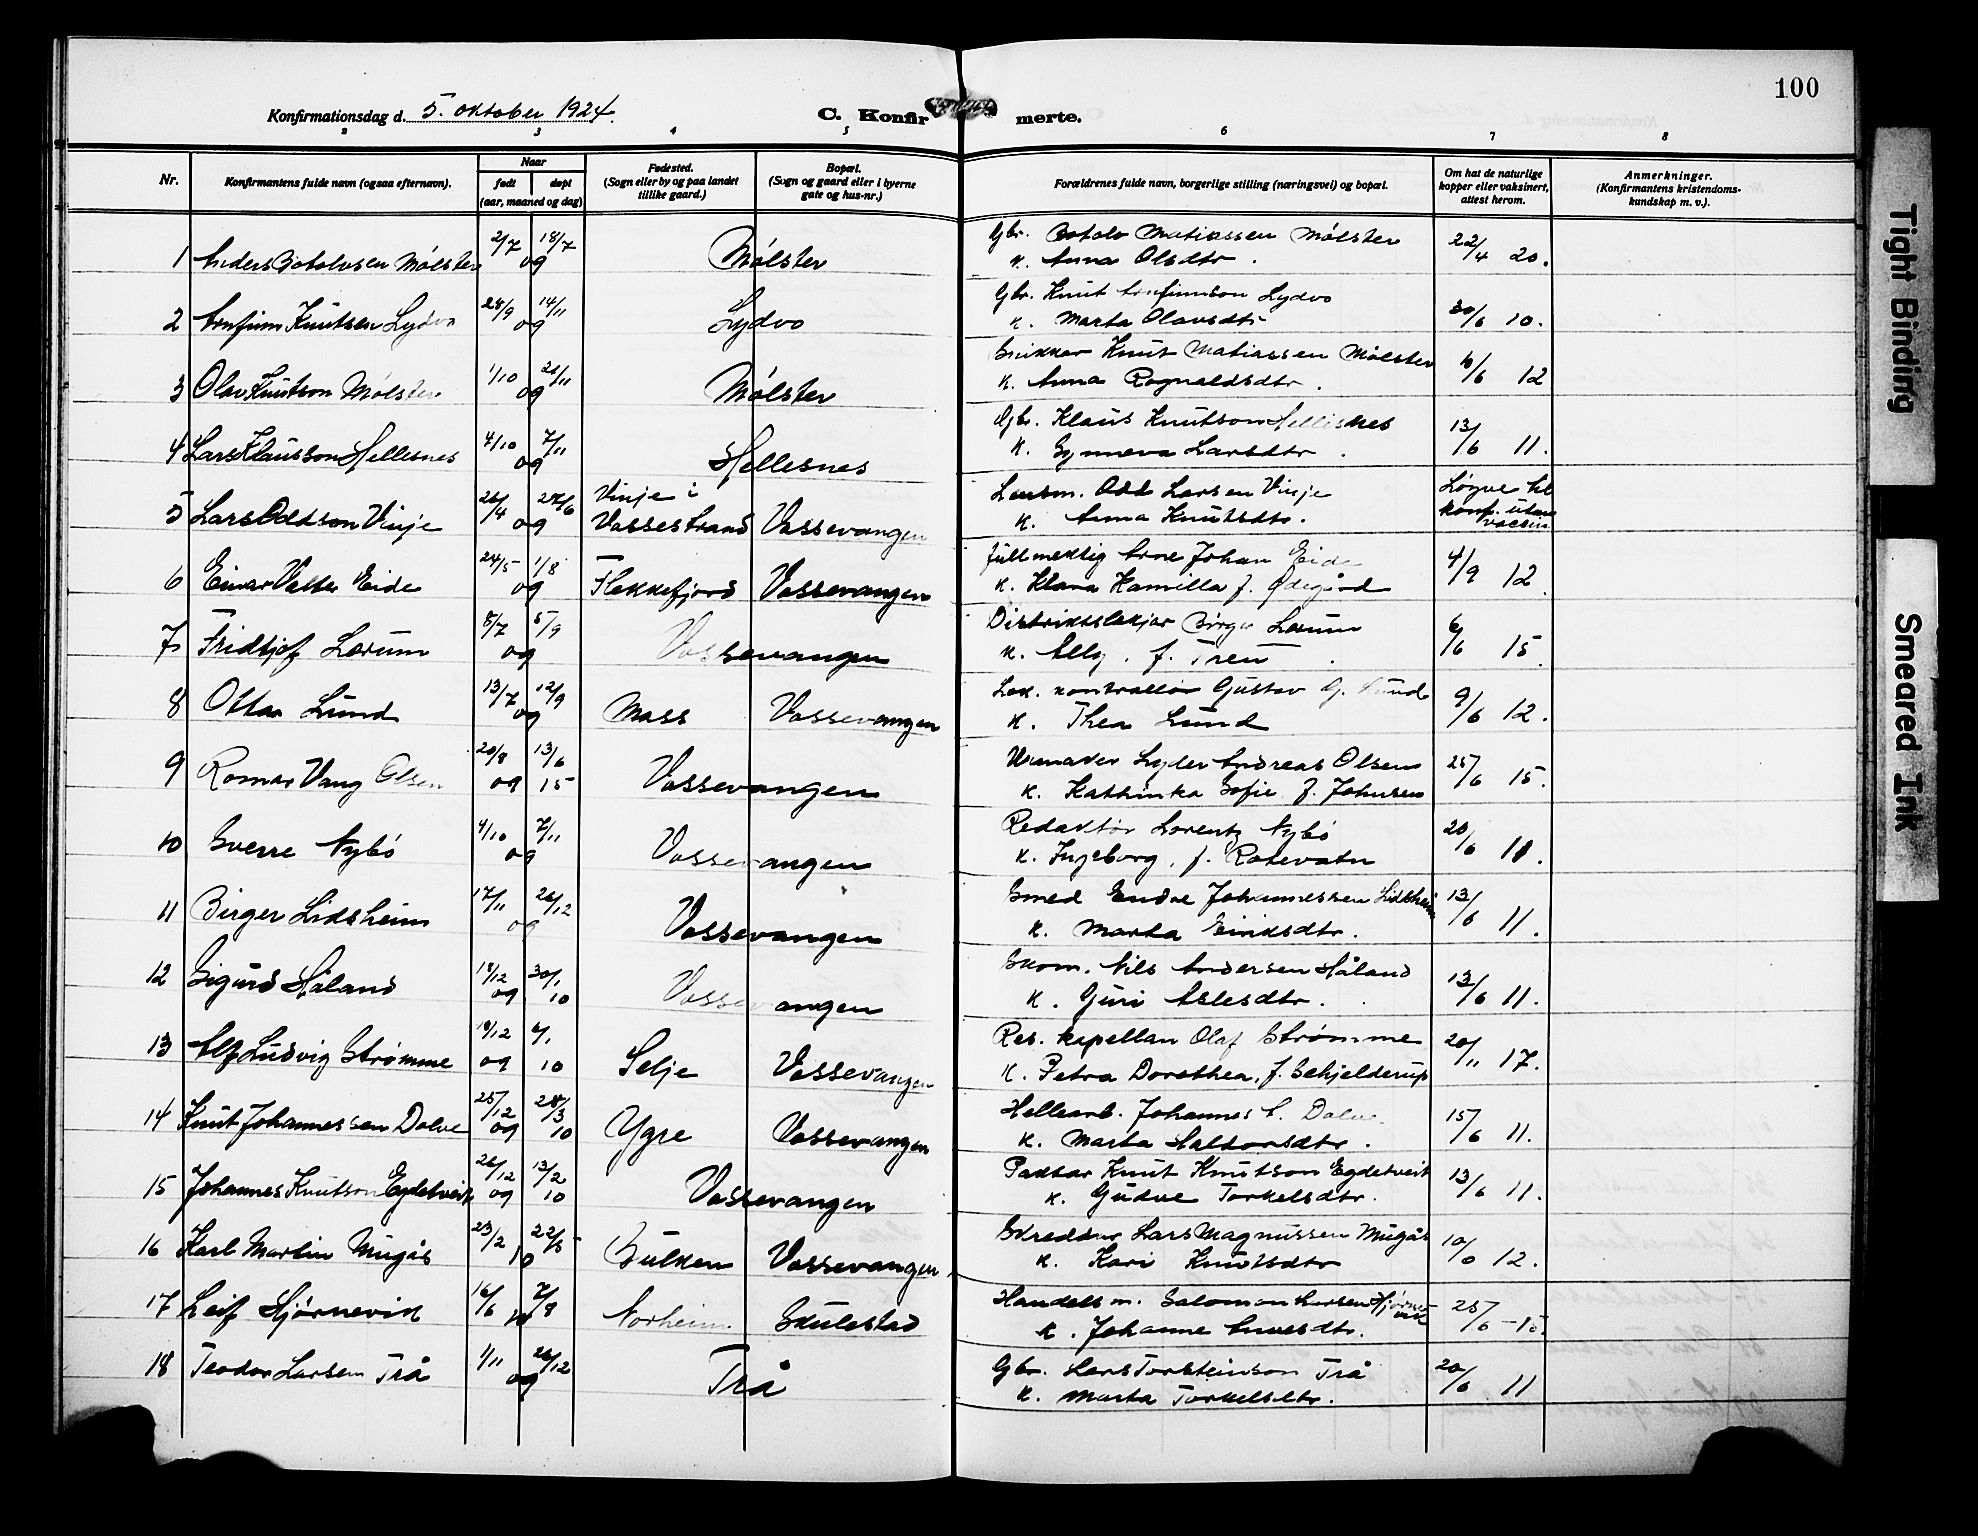 100
Konfirmationsdag d. 5. oktober 1924.
C. Konfirmerte.
2 3 4 5 6 7 8
Nr.
Konfirmantens fulde navn (ogsaa efternavn).
Naar
født døpt
(aar, maaned og dag)
Fødested.
(Sogn eller by og paa landet
tillike gaard.)
Bopæl.
(Sogn og gaard eller i byerne
gate og hus-nr.)
Forældrenes fulde navn, borgerlige stilling (næringsvei) og bopæl.
Om hat de naturlige
kopper eller vaksinert,
attest herom.
Anmerkninger.
(Konfirmantens kristendoms-
kundskap m. v.).
1 Anders Botolvsen Mølster 2/7 18/7 09 Mølster Gbr. Botolv Matiassen Mølster 22/4 20.
k. Anna Olsdtr.
2 Arnfinn Knutsen Lydvo 28/9 14/11 09 Lydvo Gbr. Knut Arnfinnson Lydvo 30/6 10.
k. Marta Olavsdtr
3 Olav Knutson Mølster 1/10 21/11 09 Mølster Snikkar Knut Matiassen Mølster 6/6 12
k. Anna Rognaldsdtr.
4 Lars Klausson Hellesnes 4/10 7/11 09 Hellesnes Gbr. Klaus Knutson Hellesnes 13/6 11.
k. Synneva Larsdtr.
5 Lars Oddson Vinje 26/4 27/6 09 Vinje i Vossestrand Vossevangen Lensm. Odd Larsen Vinje Løyve til
k. Anna Knutsdtr. konf. utan vaccin
6 Einar Valter Eide 24/5 1/8 09 Flekkefjord Vossevangen Fullmektig Arne Johan Eide 4/9 12
k. Klara Kamilla f. Ødegård
7 Fridtjof Lærum 8/7 5/9 09 Vossevangen Distriktslækjar Birger Lærum 6/6 15.
k. Ally. f. Treu
8 Ottar Lund 13/7 12/9 09 Moss Vossevangen Lok. kontrollør Gustav G. Lund 9/6 12.
k. Thea Lund
9 Romar Vang Olsen 20/8 09 13/6 15 Vossevangen Urmaker Lyder Andreas Olsen 25/6 15.
k. Kathinka Sofie f. Johnsen
10 Sverre Nybø 4/10 7/11 09 Vossevangen Redaktør Lorentz Nybø 20/6 11.
k. Ingeborg, f. Rotevatn
11 Birger Lidsheim 17/11 26/12 09 Vossevangen Smed Endre Johannessen Lidsheim 13/6 11.
k. Marta Eiriksdtr.
12 Sigurd Håland 18/12 09 30/1 10 Vossevangen Skom. Nils Andersen Håland 13/6 11.
k. Guri Aslesdtr.
13 Alf Ludvig Strømme 19/12 09 6/1 10 Selje Vossevangen Res. kapellan Olaf Strømme 20/11 17.
k. Petra Dorothea, f. Schjelderup
14 Knut Johannessen Dolve 25/12 09 28/3 10 Ygre Vossevangen Hellearb. Johannes A. Dolve 15/6 11.
k. Marta Haldorsdtr.
15 Johannes Knutson Egdetveit 26/12 09 13/2 10 Vossevangen Paktar Knut Knutson Egdetveit 13/6 11.
k. Gudve Torkelsdtr.
16 Karl Martin Mugås 23/2 22/5 10 Bulken Vossevangen Skreddar Lars Magnussen Mugås 10/ 12.
k. Kari Knutsdtr
17 Leif Hjørnevik 16/6 7/8 10 Norheim Skulestad Handelsm. Salomon Larsen Hjørnevik 25/6 - 15.
k. Johanne Arnesdtr.
18 Teodor Larsen Trå 1/11 26/12 09 Trå Gbr. Lars Torsteinson Trå 20/6 11
k. Marta Torkelsdtr.
Tight Binding
Smeared Ink